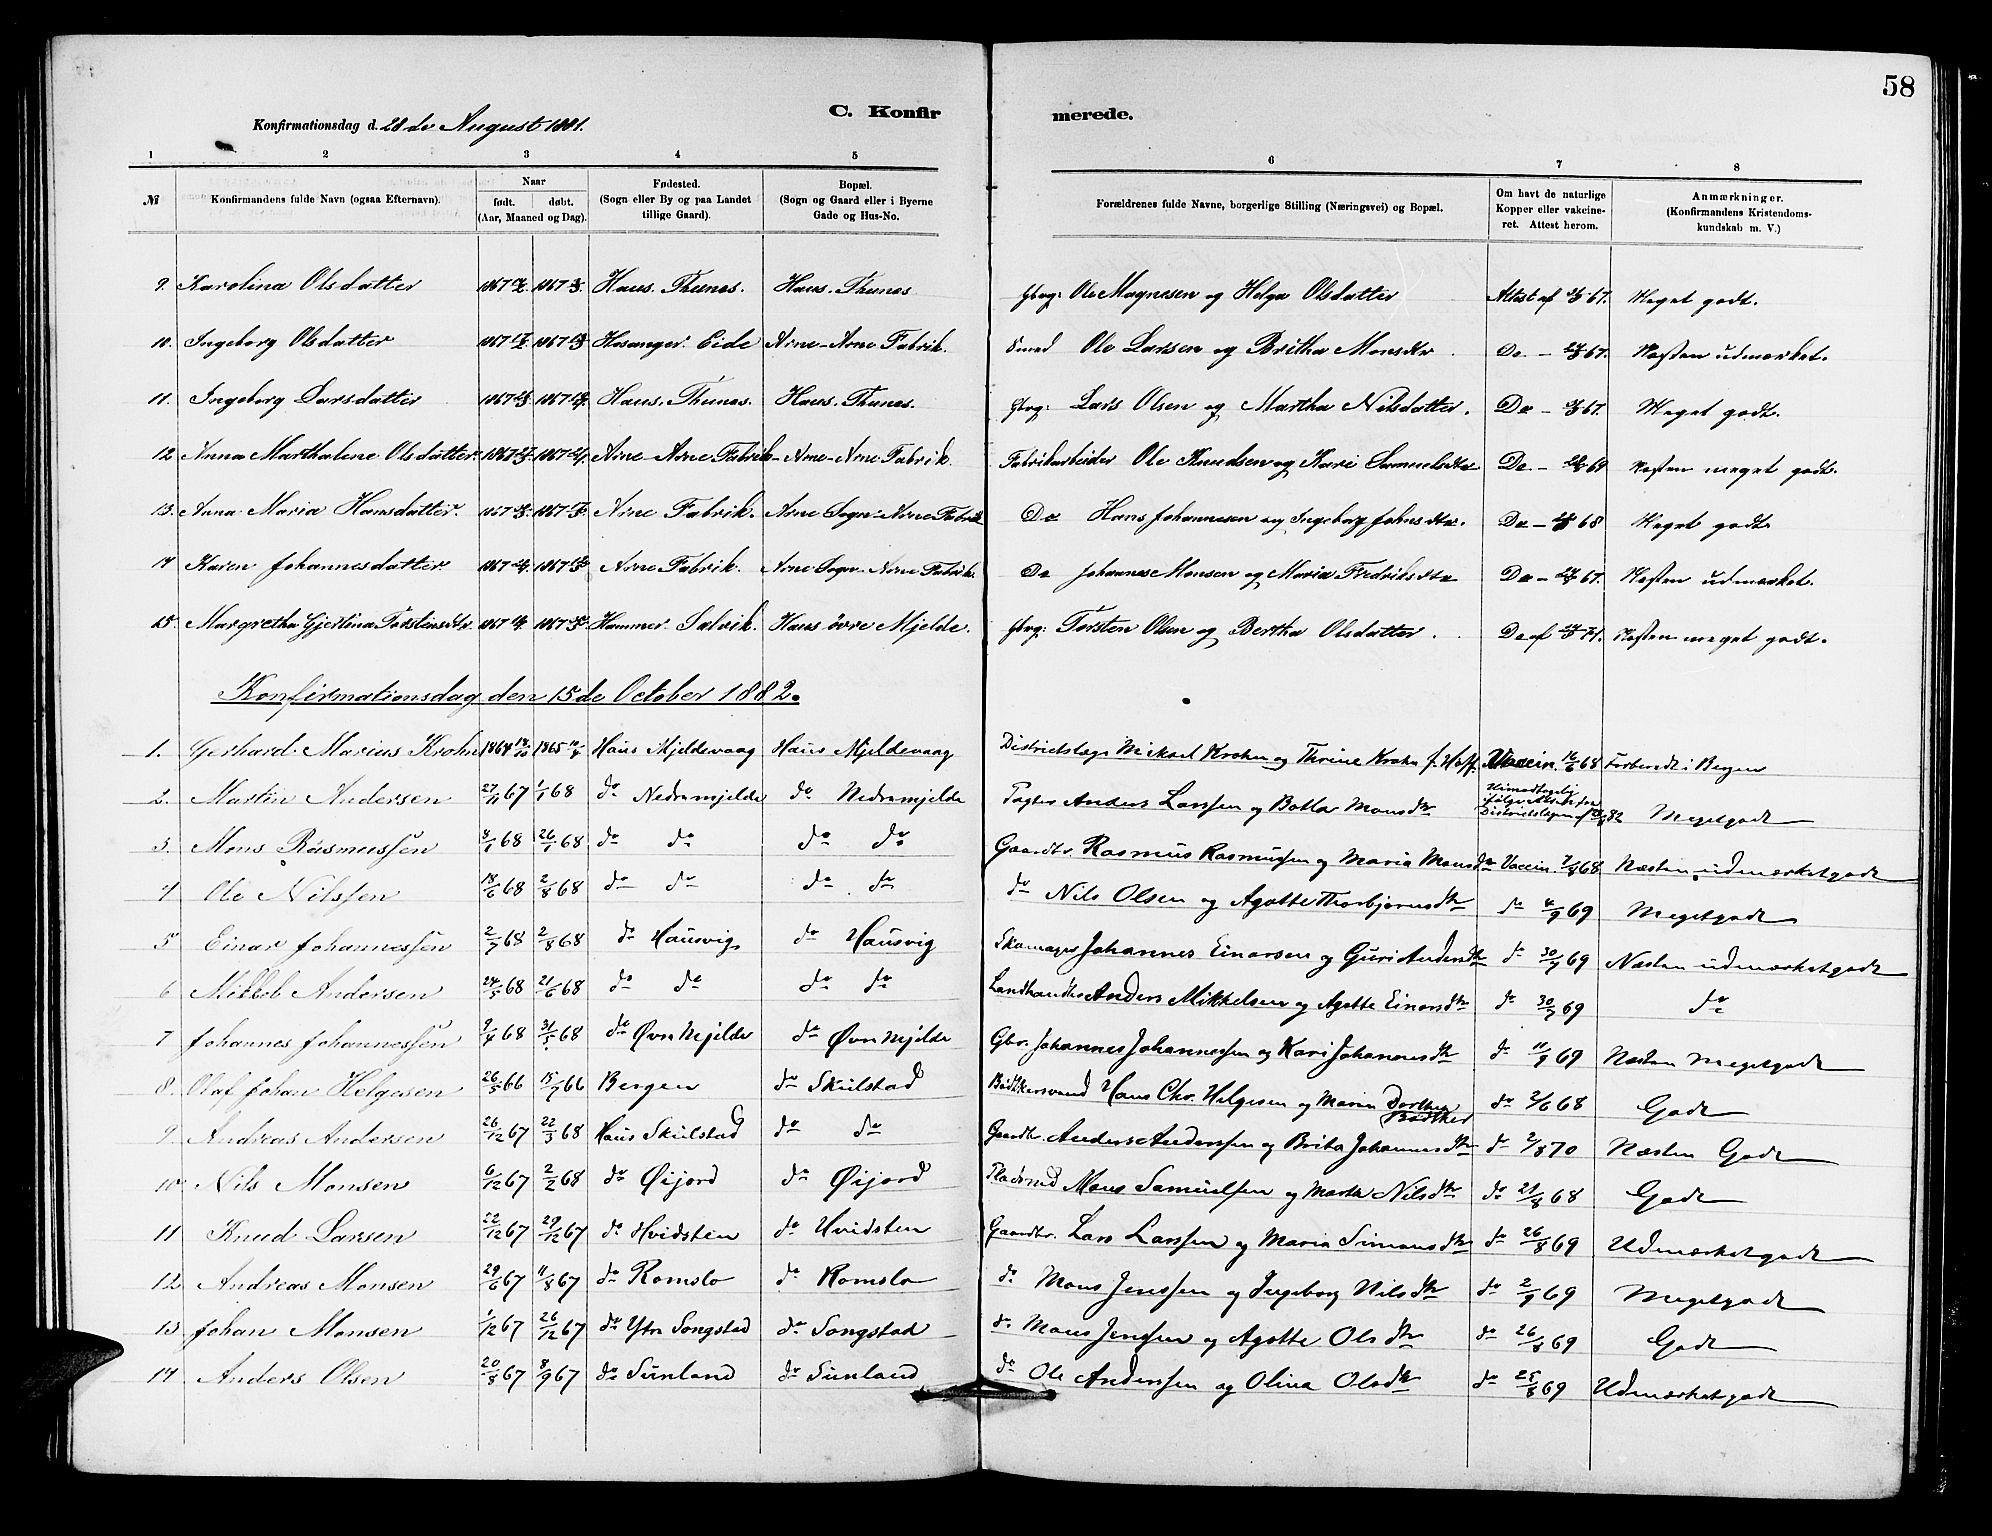 58
C. Konfirmerede.
Konfirmationsdag d. 28de August 1881.
1 2 3 4 5 6 7 8
№ Konfirmandens fulde Navn (ogsaa Efternavn). Naar født. døbt. (Aar, Maaned og Dag). Fødested. (Sogn eller By og paa Landet tillige Gaard). Bopæl. (Sogn og Gaard eller i Byerne Gade og Hus-No. Forældrenes fulde Navne, borgerlige Stilling (Næringsvei) og Bopæl. Om havt de naturlige Kopper eller vakcineret. Attest herom. Anmærkninger. (Konfirmandens Kristendomskundskab m. V.)
9. Karolina Olsdatter 1867 1867 Haus. Thunes. Haus. Thunes Ole Magnesen og Helga Olsdatter Attest af 67. Meget godt.
10. Ingeborg Olsdatter 1867 1867 Hosanger. Eide Arne-Arne Fabrik. Smed Ole Larsen og Britha Monsdtr Do - 67. Næsten udmærket.
11. Ingeborg Larsdatter 1867 1867 Haus. Thunes. Haus. Thunes. Lars Olsen og Martha Nilsdatter. Do - 67. Meget godt.
12 Anna Marthalene Olsdatter 1867 1867 Arne-Arne Fabrik - Arne-Arne Fabrik. Fabrikarbeider Ole Knudsen og Kari Samuelsdtr Do - 69 Næsten meget godt.
13. Anna Maria Hansdatter. 1867 1867 Arne Fabrik. Arne Sogn-Arne Fabrik Do Hans Johannesen og Ingeborg Johnsdtr. Do - 68 Meget godt
14 Karen Johannesdatter 1867 1867 Arne Fabrik. Arne Sogn-Arne Fabrik. Do Johannes Monsen og Maria Fredriksdtr Do - 67. Næsten udmærket.
15. Margretha Gjertina Torstensdtr. 1867 1867 Hammer. Salvik. Haus övre Mjelde. Torsten Olsen og Bertha Olsdatter. Do af 71. Næsten meget godt.
Konfirmationsdag den 15de October 1882.
1. Gerhard Marius Krohn 1864 14/10 1865 10/4 Haus Mjeldevaag Haus Mjeldevaag Districtslæge Mikael Krohn og Thrine Krohn f. Hoff. Vaccin. 16/6 68 Forberedt i Bergen
2. Martin Andersen 27/11 67 1/1 68 do Nedremjelde do Nedremjelde Anders Larssen og Botla Monsdtr Uimodtagelig ifølge Attest fra Districtslægen af 82 Megetgodt
3. Mons Rasmussen 8/1 68 26/1 68 do do do do Gaardbr. Rasmus Rasmussen og Maria Monsdtr Vaccin. 7/8 68 Næsten udmærketgodt
4 Ole Nilssen 18/6 68 2/8 68 do do do do do Nils Olsen og Agotte Thorbjørnsdtr do 4/9 69 Megetgodt
5 Einar Johannessen 2/7 68 2/8 68 do Hausvig do Hausvig Skomager Johannes Einarsen og Guri Andersdtr do 30/7 69 Næsten udmærketgodt
6 Mikkel Andersen 24/5 68 21/6 68 do do do do Landhandler Anders Mikkelsen og Agotte Einarsdtr do 30/7 69 do
7 Johannes Johannessen 9/4 68 31/5 68 do Øvre Mjelde do Øvre Mjelde Gbr. Johannes Johannessen og Kari Johannesdtr do 11/9 69 Næsten Megetgodt
8. Olaf Johan Helgesen 26/5 66 15/7 66 Bergen do Skulstad Bødtkersvend Hans Chr. Helgesen og Maria Dorthea Bødtker do 2/6 68 Godt
9. Andreas Andersen 26/12 67 22/3 68 Haus Skulstad do do Gaardbr. Anders Anderssen og Brita Johannesdtr do 2/8 70 Næsten Godt
10 Nils Monsen 6/12 67 2/2 68 do Øijord do Øijord Pladsmd Mons Samuelsen og Marta Nilsdtr do 21/8 68 Godt
11 Knud Larsen 22/12 67 29/12 67 do Hvidsten do Hvidsten Gaardbr. Lars Larssen og Maria Simonsdtr do 26/8 69 Udmærketgodt
12. Andreas Monsen 29/6 67 11/8 67 do Romslo do Romslo do Mons Jenssen og Ingeborg Nilsdtr do 2/9 69 Megetgodt
13 Johan Monsen 1/12 67 26/12 67 do Ytre Songstad do Songstad do Mons Jenssen og Agotte Olsdtr do 26/8 69 Godt
14 Anders Olsen 20/8 67 8/9 67 do Sunland do Sunland do Ole Anderssen og Olina Olsdtr do 25/8 69 Udmærketgodt